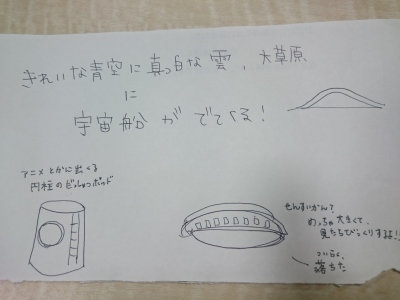 きれいな青空に真っ白な雲、大草原
に
宇宙船がでてくる!
アニメとかに出てくる
円柱のだっしゅつポッド
せんすいかん?
めっちゃ大きくて、
見たらびっくりするよ!!
ついらく
落ちた